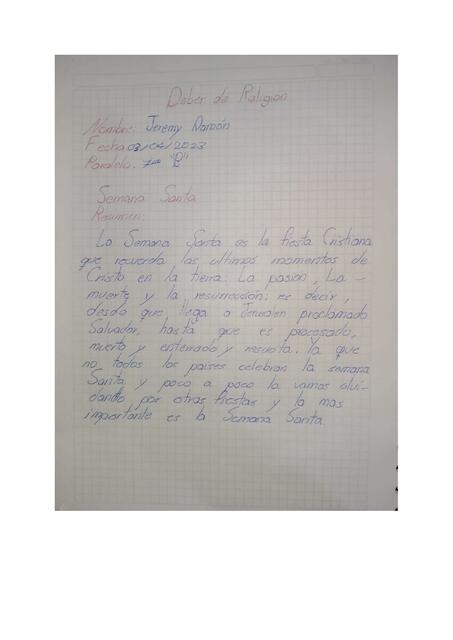 Deber de Religion
Nombre: Jeremy Ramón
Fecha 03/04/2023
Paralelo. 7mo "B"
Semana Santa
Resumen:
La Semana Santa es la fiesta Cristiana
que recuerda las ultimos momentos de
Cristo en la tierra. La pasion, La -
muerte y la resurrección: es decir,
desde que llega a Jerusalen proclamado
Salvador, hasta que es procesado,
muerto y enterrado y resucita. la que
no todos los paises celebran la semana
Santa y poco a poco la vamos olvi-
dando por otras fiestas y la mas
importante es la Semana Santa.